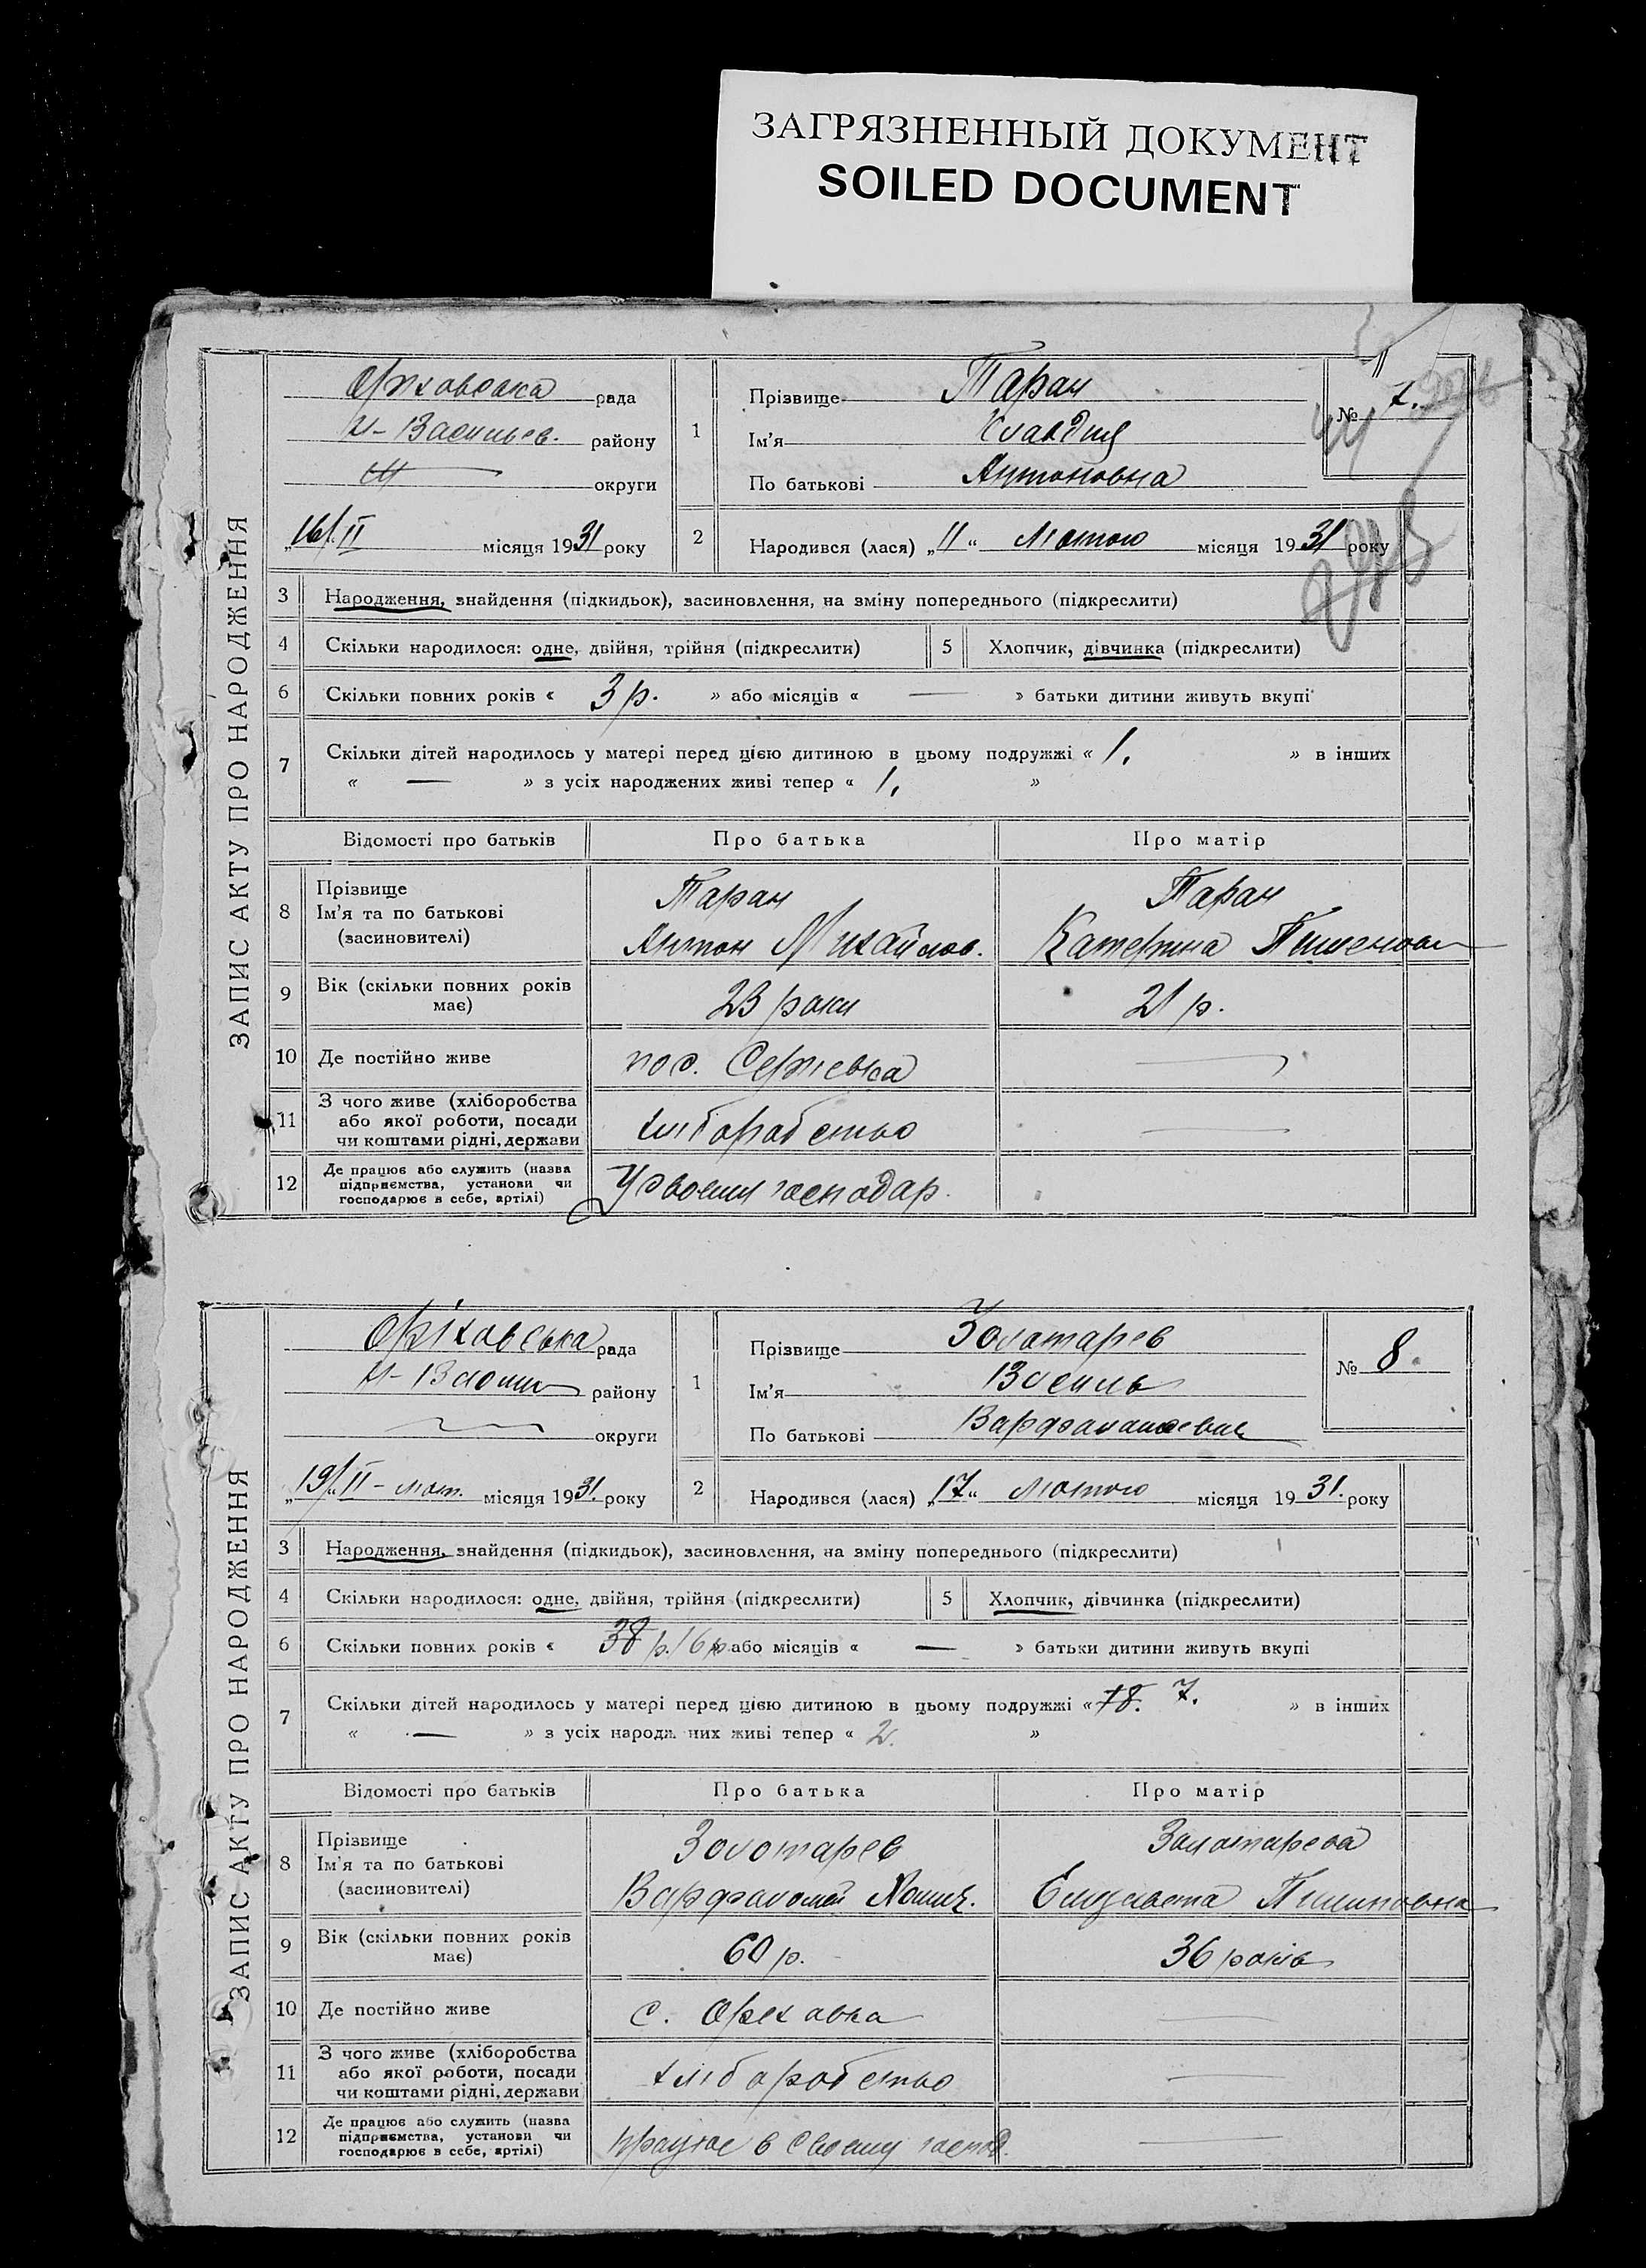 ЗАГРЯЗНЕННЫЙ ДОКУМЕНТ
SOILED DOCUMENT
ЗАПИС АКТУ ПРО НАРОДЖЕННЯ
Оріховська рада
Н-Васильев. району
округи
„16/II місяця 1931 року
1
Прізвище Таран
Ім'я Клавдия
По батькові Антоновна
№ 7.
2
Народився (лася) „11“ Лютого місяця 1931 року
3 Народження, знайдення (підкидьок), засиновлення, на зміну попереднього (підкреслити)
4 Скільки народилося: одне, двійня, трійня (підкреслити) 5 Хлопчик, дівчинка (підкреслити)
6 Скільки повних років « 3 р. » або місяців « — » батьки дитини живуть вкупі
7 Скільки дітей народилось у матері перед цією дитиною в цьому подружжі « 1. » в інших
« — » з усіх народжених живі тепер « 1. »
Відомості про батьків Про батька Про матір
8 Прізвище
Ім'я та по батькові
(засиновителі)
Таран
Антон Михайлов.
Таран
Катерина
9 Вік (скільки повних років
має)
23 роки 21 р.
10 Де постійно живе пос. Сергіевка —
11 З чого живе (хліборобства
або якої роботи, посади
чи коштами рідні, держави
хліборобство —
12 Де працює або служить (назва
підприємства, установи чи
господарює в себе, артілі)
У своєми господар.
ЗАПИС АКТУ ПРО НАРОДЖЕННЯ
Оріховська рада
Н-Васили району
округи
„19/II - лют. місяця 1931. року
1
Прізвище Золотарев
Ім'я Василь
По батькові Варфоламеевич
№ 8.
2
Народився (лася) „17“ Лютого місяця 1931. року
3 Народження, знайдення (підкидьок), засиновлення, на зміну попереднього (підкреслити)
4 Скільки народилося: одне, двійня, трійня (підкреслити) 5 Хлопчик, дівчинка (підкреслити)
6 Скільки повних років « 38 р. 16 р. » або місяців « — » батьки дитини живуть вкупі
7 Скільки дітей народилось у матері перед цією дитиною в цьому подружжі « 18. 7. » в інших
« — » з усіх народж них живі тепер « 2. »
Відомості про батьків Про батька Про матір
8 Прізвище
Ім'я та по батькові
(засиновителі)
Золотарев
Варфоломей
Золотарева
Елизавета Пилиповна
9 Вік (скільки повних років
має)
60 р. 36 років
10 Де постійно живе с. Орехавка —
11 З чого живе (хліборобства
або якої роботи, посади
чи коштами рідні, держави
хліборобство —
12 Де працює або служить (назва
підприємства, установи чи
господарює в себе, артілі)
працює в своєму господ. —